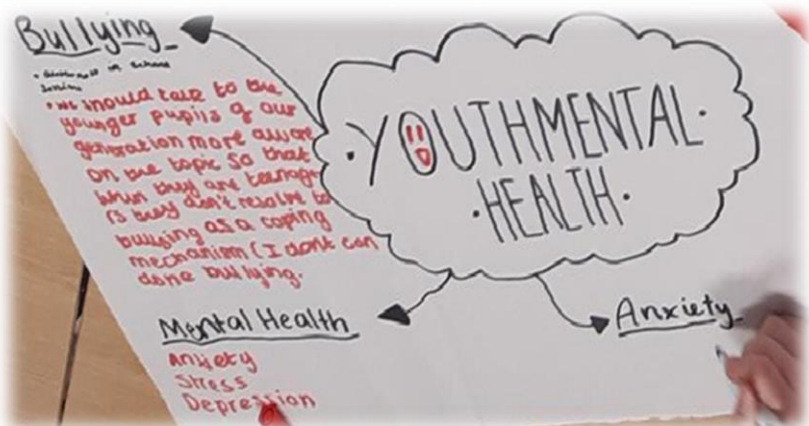 Bullying
in school
• we should talk to the
younger pupils of our
generation more aware
on the topic so that
when they are teenag
rs they don't resolve to
bullying as a coping
mechanism (I dont con
done bullying.
• YOUTHMENTAL •
• HEALTH •
Mental Health
Anxiety
Stress
Depression
Anxiety